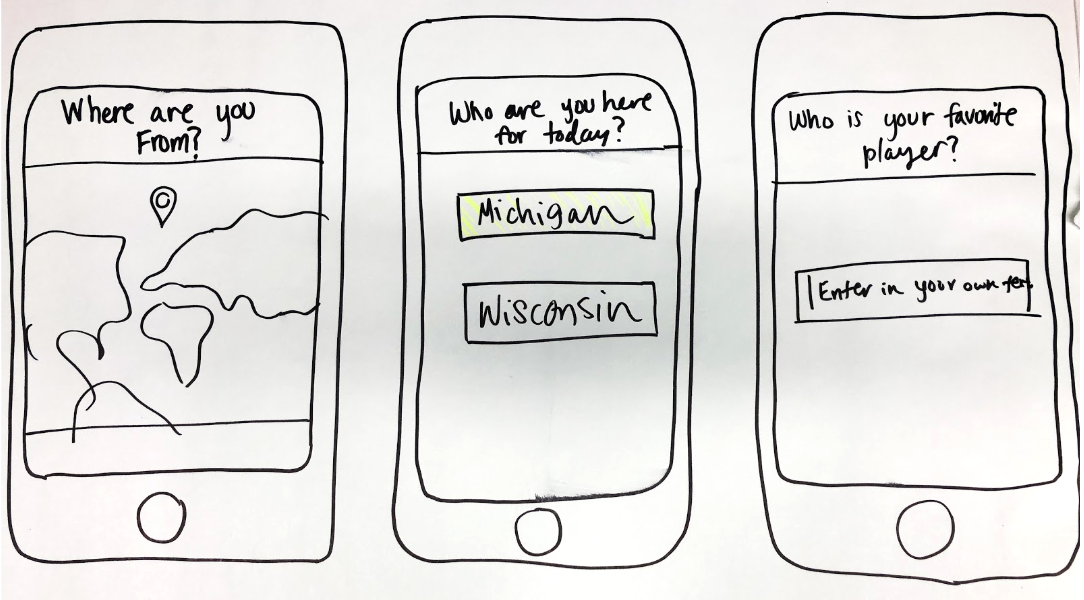 Where are you
From?
Who are you here
for today?
Michigan
Wisconsin
Who is your favorite
player?
Enter in your own